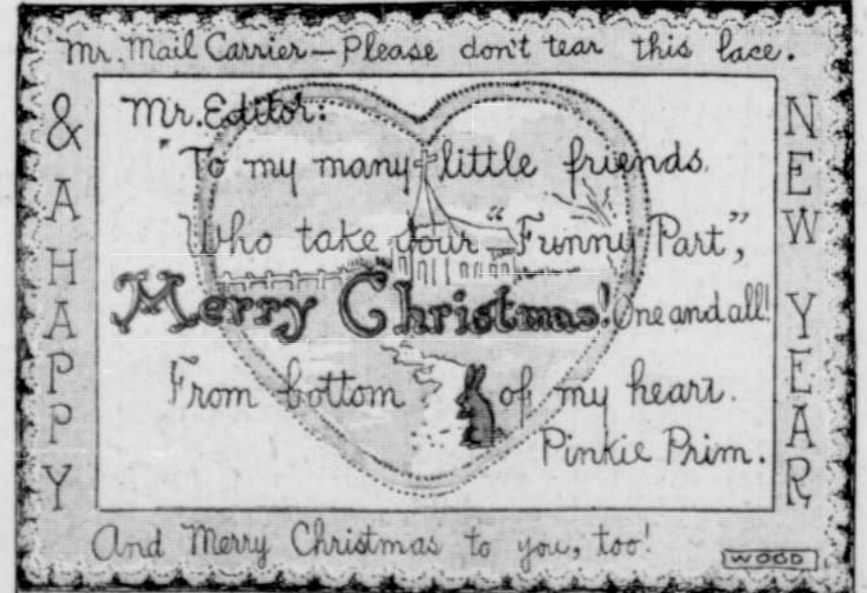 Mr. Mail Carrier — Please don't tear this lace.
Mr. Editor:
To my many little friends.
Who take your "Funny Part",
Merry Christmas! One and all!
From bottom of my heart.
Pinkie Prim.
& A HAPPY
NEW YEAR
And Merry Christmas to you, too!
WOOD